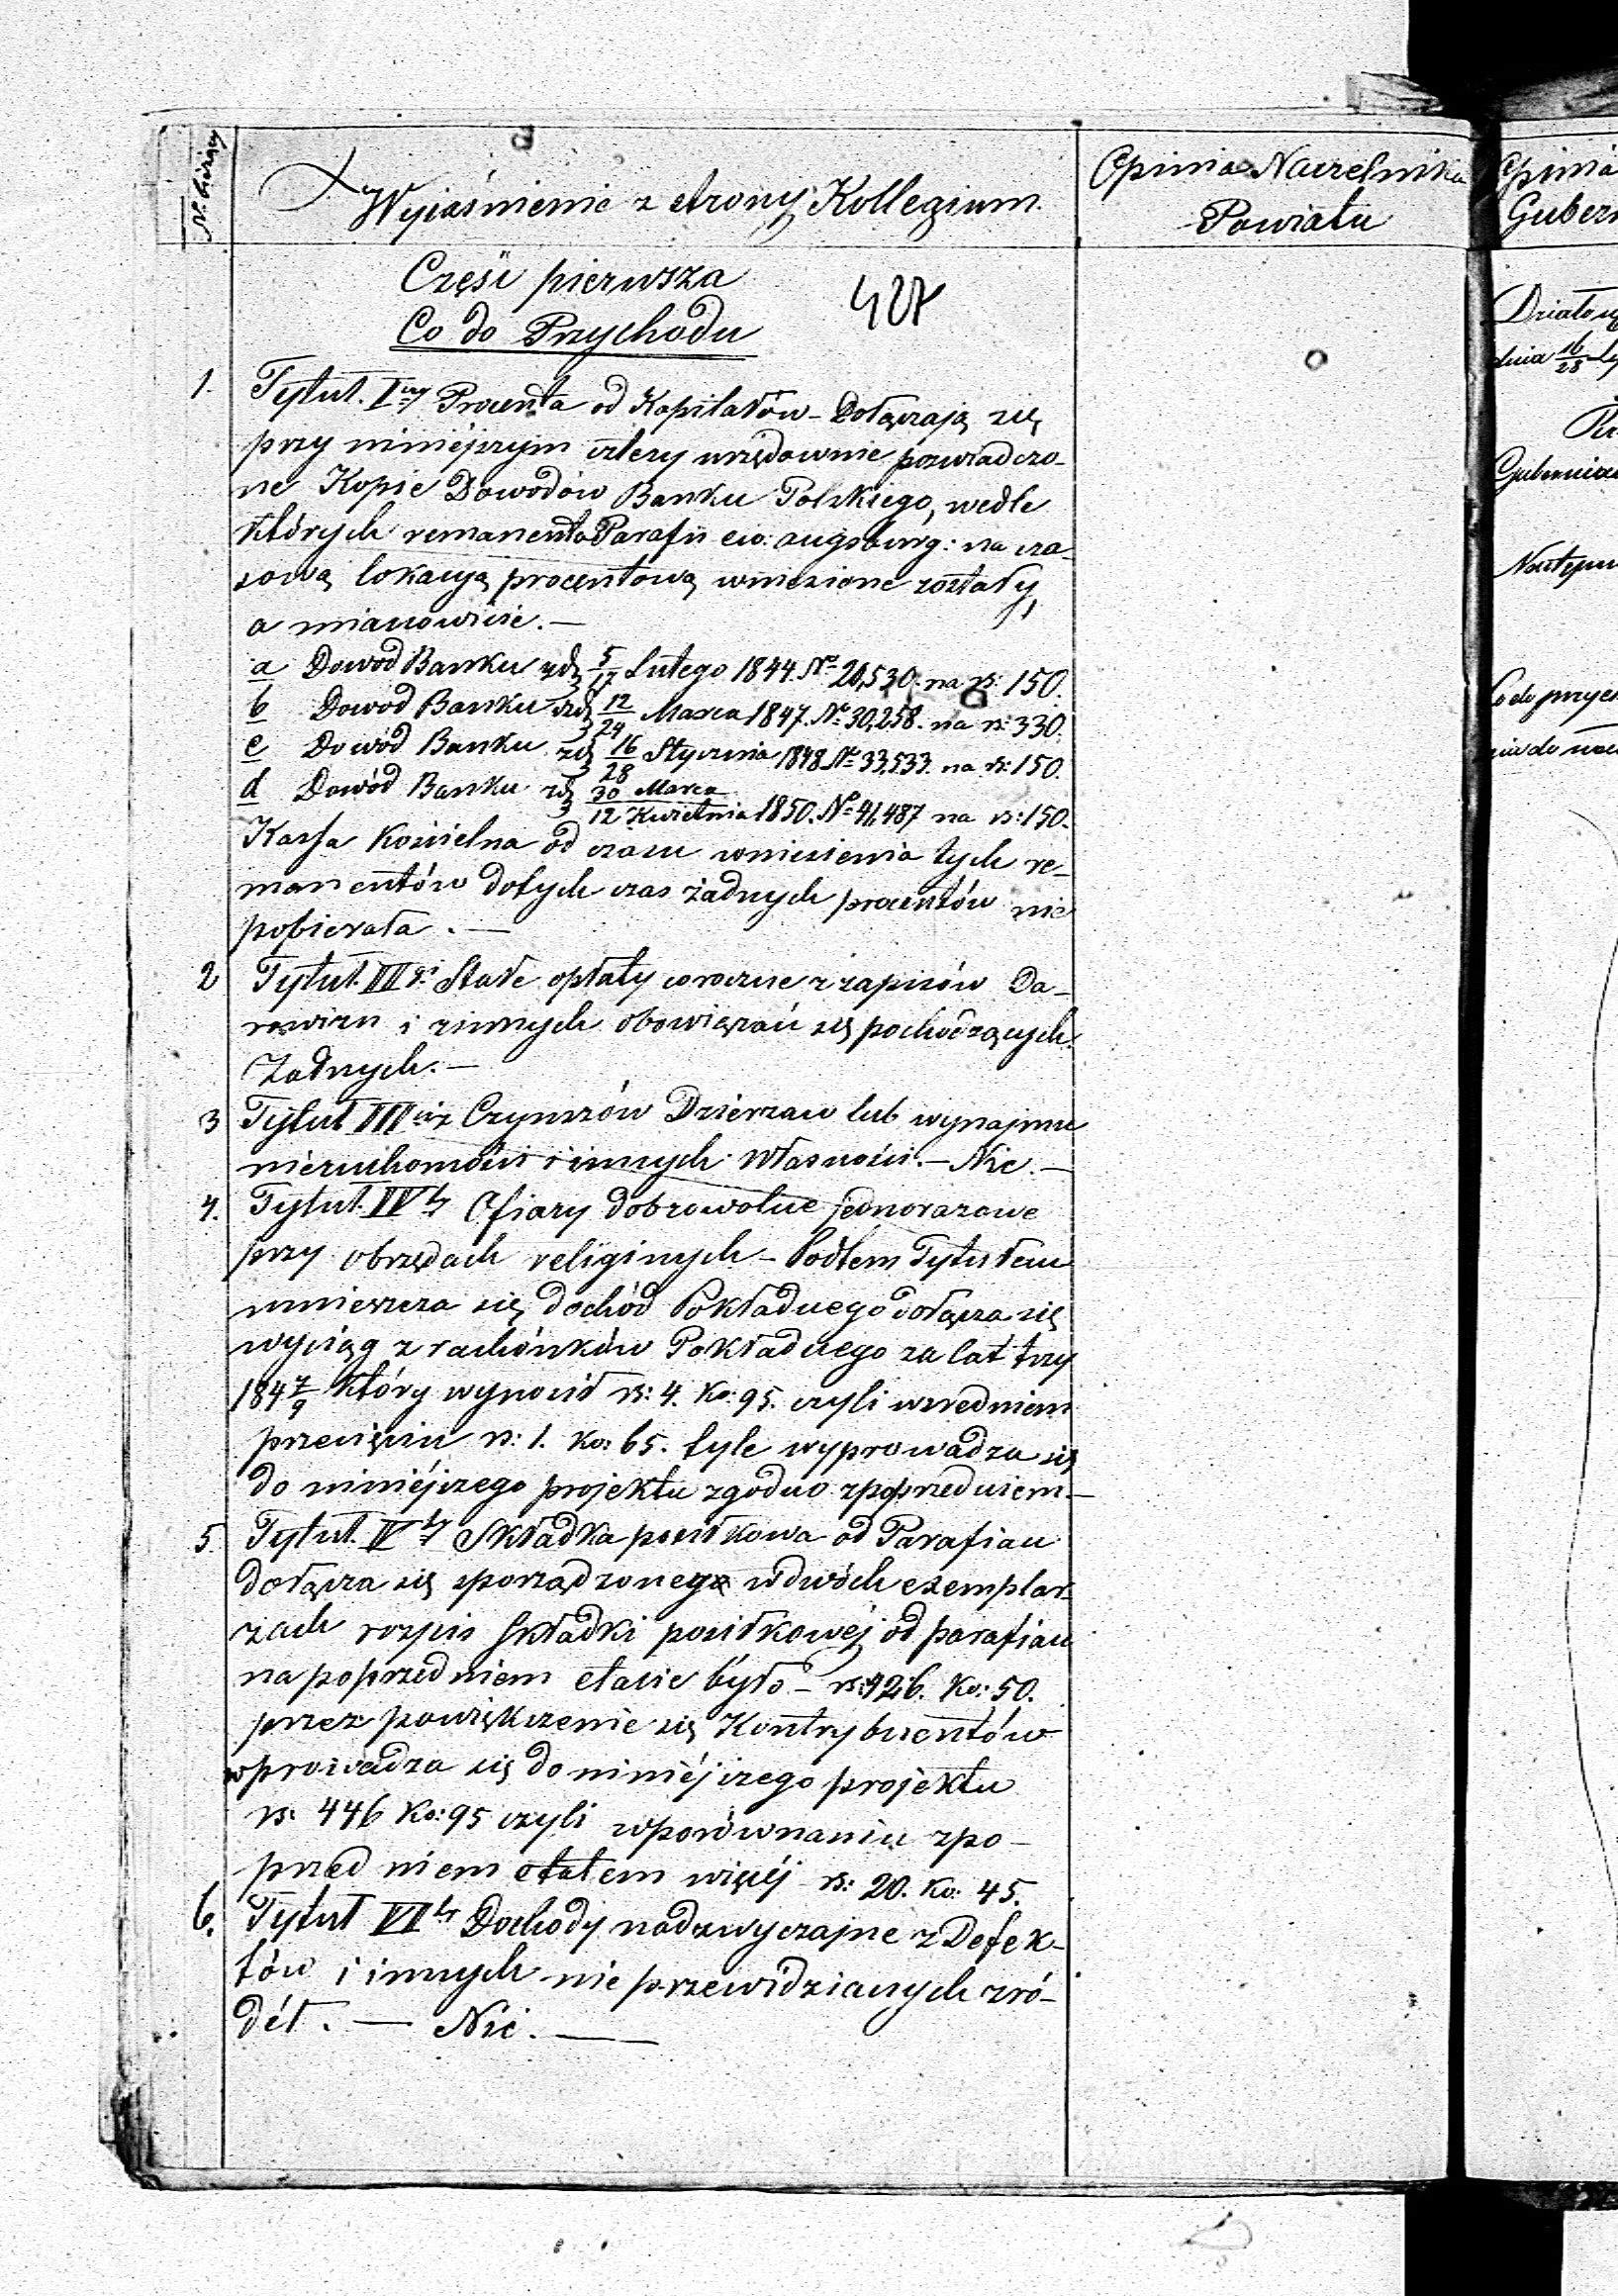 No bieżący
Wyjaśnienie z strony Kollegium.
Opinia Naczelnika
Powiatu
Opinia
Gubern
Część pierwsza
427
Co do Przychodu
1. Tytuł. Iwy Procenta od Kapitałów – Dołączają się
przy niniéjszym cztery urzędownie poświadczo-
ne Kopie Dowodów Banku Polskiego, wedle
których remanenta Parafii ew: augsburg: na cza-
sową lokacyą procentową wniesione zostały,
a mianowicie. –
a Dowód Banku zd 5/17 Lutego 1844. No 20,530. na rs: 150.
b Dowod Banku zd 12/24 Marca 1847. No 30,258. na rs: 330.
c Dowód Banku zd 16/28 Stycznia 1848 No 33,533. na rs: 150.
d Dowód Banku zd 30 Marca / 12 Kwietnia 1850. No 41,487 na rs: 150.
Kassa Kościelna od czasu wniesienia tych re-
manentów dotych czas żadnych procentów nie
pobierała. –
2 Tytuł. IIgi Stałe opłaty coroczne z zapisów Da-
rowizn i zinnych obowiązań się pochodzących.
Żadnych. –
3 Tytuł III z Czynszów Dzierzaw lub wynajmu
nieruchomości i innych Własności. – Nic. –
4. Tytuł. IVty Ofiary dobrowolne jednorazowe
przy obrzędach religinych – Podtem Tytułem
umieszcza się dochód Pokładnego dołącza się
wyciąg z rachónków Pokładnego za lat trzy
1847/9 który wynosił rs: 4. Ko: 95. czyli wsredniem
przecięciu rs: 1. Ko: 65. tyle wyprowadza się
do niniéjszego projektu zgodno zpoprzedniem. –
5. Tytuł. Vty Składka posiłkowa od Parafian
dołącza się sporządzonego wdwóch exemplar-
zach rozpis składki posiłkowéj od parafian
na poprzedniem etacie było – rs: 426. Ko: 50.
przez powiększenie się Kontrybuentów
wprowadza się do niniéjszego projektu
rs. 446 Ko: 95 czyli wporównaniu zpo-
przed niem etatem więcéj rs: 20. Ko: 45.
6. Tytuł VIty Dochody nadzwyczajne z Defek-
tów i innych nie przewidzianych zró-
déł. – Nic. –
dnia 16/28
Co do przych